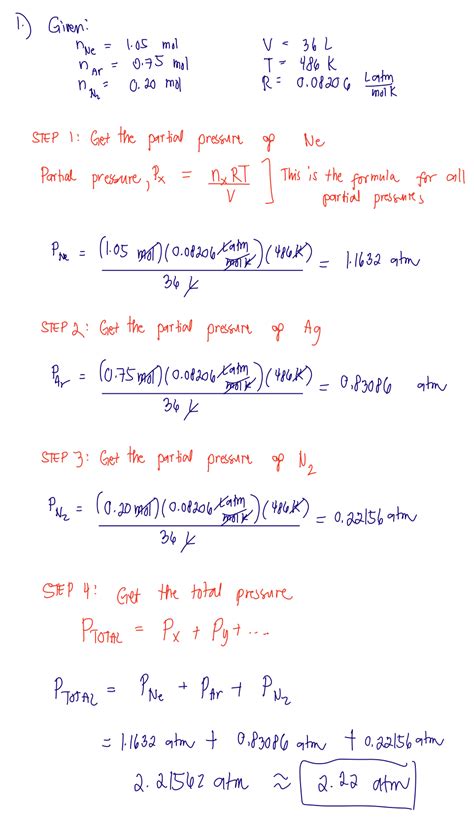 1.) Given:
n_Ne = 1.05 mol V = 36 L
n_Ar = 0.75 mol T = 486 K
n_N₂ = 0.20 mol R = 0.08206 L atm / mol K
STEP 1: Get the partial pressure of Ne
Partial pressure, P_x = n_x RT / V ] This is the formula for all partial pressures
P_Ne = (1.05 mol)(0.08206 L atm / mol K)(486 K) / 36 L = 1.1632 atm
STEP 2: Get the partial pressure of Ag
P_Ar = (0.75 mol)(0.08206 L atm / mol K)(486 K) / 36 L = 0.83086 atm
STEP 3: Get the partial pressure of N₂
P_N₂ = (0.20 mol)(0.08206 L atm / mol K)(486 K) / 36 L = 0.22156 atm
STEP 4: Get the total pressure
P_TOTAL = P_x + P_y + ....
P_TOTAL = P_Ne + P_Ar + P_N₂
= 1.1632 atm + 0.83086 atm + 0.22156 atm
2.21562 atm ≈ 2.22 atm